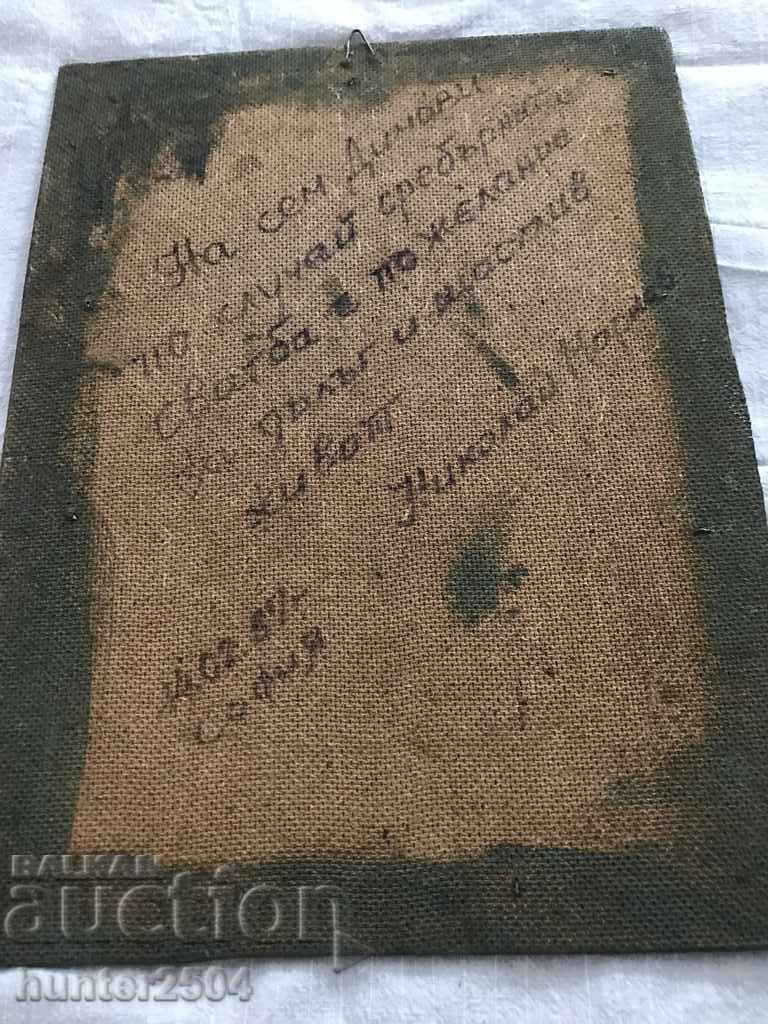 На сем Динови
по случай сребърната
сватба с пожелание
за дълъг и щастлив
живот
Николай
02.87г.
София
BALKAN
auction
hunter2504